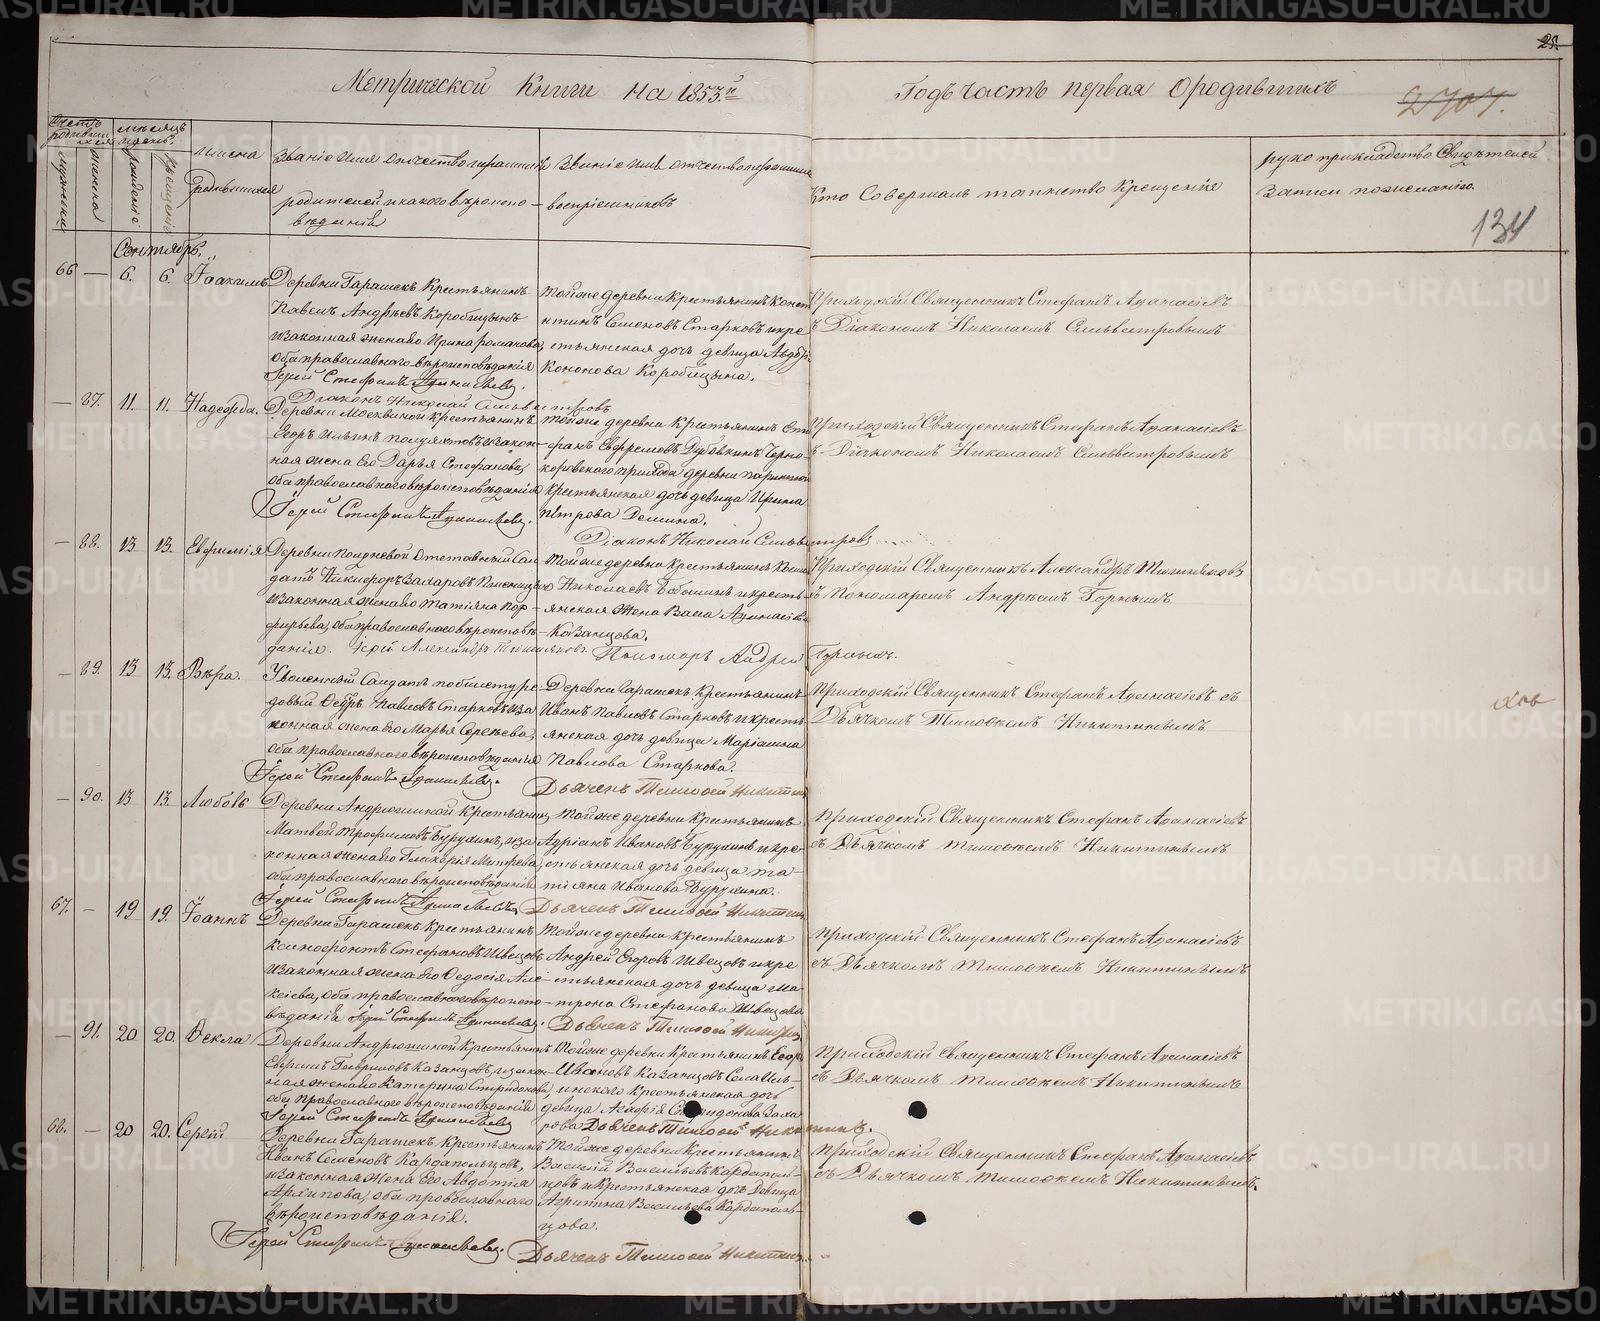 25.
Метрической Книги на 1853.й Годъ Часть первая Ородившихъ
2707.
134
Счетъ родившихся
мужеска
женска
Мѣсяцъ и день
рожденія
крещенія
Имена
родившихся
Званіе имя отчество и фамилія
родителей и какого вѣроиспо-
вѣданія
Званіе имя отчество и фамилія
воспріемниковъ
Кто Совершалъ таинство Крещенія
руко прикладство Свидѣтелей
записи по желанію.
Сентябрь.
66 — 6. 6. Іоакимъ
Деревни Гарашекъ Крестьянинъ
Павелъ Андрѣевъ Коробицынъ
изаконная жена его Ирина Романова,
оба православнаго вѣроисповѣданія
Іерей Стефанъ Афанасьевъ.
Діаконъ Николай Сильвестровъ
Той же деревни Крестьянинъ Конста
нтинъ Семеновъ Старковъ и кре
стьянская дочь девица Авдотья
Кононова Коробицына.
Приходскій Священникъ Стефанъ Афанасіевъ
съ Діакономъ Николаемъ Сильвестровымъ
— 87. 11. 11. Надежда.
Деревни Москвиной Крестьянинъ
Егоръ Ильинъ Полуяктовъ и закон-
ная жена Его Дарья Стефанова,
оба православнаго вѣроисповѣданія
Іерей Стефанъ Афанасьевъ.
Той же деревни Крестьянинъ Сте
фанъ Ефремовъ Дубавкинъ Черно-
коровскаго прихода деревни
крестьянская дочь девица Ирина
Петрова Демина.
Діаконъ Николай Сильвестровъ
Приходскій Священникъ Стефанъ Афанасіевъ
съ Діакономъ Николаемъ Сильвестровымъ
— 88. 13 13. Евфимія
Деревни Отставный Сол
датъ Никифоръ Захаровъ
изаконная жена его Татіяна Пор-
фирьева, оба православнаго вѣроисповѣ-
данія. Іерей Александръ Тюшняковъ.
Той же деревни Крестьянинъ
Николаевъ Бабошинъ и кресть-
янская жена Васса Афанасіева
Казанцова.
Пономарь Андрей Горныхъ.
Приходскій Священникъ Александръ Тюшняковъ
съ Пономаремъ Андрѣемъ Горныхъ
— 89. 13 13. Вѣра.
Уволенный Солдатъ по билету ря-
довый Петръ Павловъ Старковъ иза
конная жена его Марья Сергѣева,
оба православнаго вѣроисповѣданія
Іерей Стефанъ Афанасьевъ.
Деревни Гарашекъ Крестьянинъ
Иванъ Павловъ Старковъ и кресть
янская дочь девица Маріамна
Павлова Старкова.
Дьячекъ Тимофей Никитинъ
Приходскій Священникъ Стефанъ Афанасіевъ съ
Дьячкомъ Тимоѳеемъ Никитинымъ
— 90. 13 13. Любовь
Деревни Андрюшиной Крестьянинъ
Матвей Трофимовъ Бурухинъ, иза
конная жена его Гликерія Митрева,
оба православнаго вѣроисповѣданія
Іерей Стефанъ Афанасьевъ
Той же деревни Крестьянинъ
Адріанъ Ивановъ Бурухинъ и кре-
стьянская дочь девица Та-
тіяна Иванова Бурухина.
Дьячекъ Тимофей Никитинъ
Приходскій Священникъ Стефанъ Афанасіевъ
съ Дьячкомъ Тимоѳеемъ Никитинымъ
67. — 19 19. Іоаннъ
Деревни Гарашекъ Крестьянинъ
Ксенофонтъ Стефановъ Швецовъ
изаконная жена его Ѳедосія Але-
ксіева, оба православнаго вѣроиспо-
вѣданія Іерей Стефанъ Афанасьевъ.
Той же деревни Крестьянинъ
Андрей Егоровъ Швецовъ и кре
стьянская дочь девица Ма-
трона Стефанова Швецова
Дьячекъ Тимофей Никитинъ
Приходскій Священникъ Стефанъ Афанасіевъ
съ Дьячкомъ Тимоѳеемъ Никитинымъ
— 91. 20 20. Ѳекла
Деревни Андрюшиной Крестьянинъ
Евфимъ Гавриловъ Казанцовъ, и закон-
ная жена его Катерина Спиридонова,
оба православнаго вѣроисповѣданія
Іерей Стефанъ Афанасьевъ
Той же деревни Крестьянинъ Егоръ
Ивановъ Казанцовъ Села Иль-
инскаго Крестьянская дочь
девица Агафія Спиридонова Заха
рова Дьячекъ Тимофей Никитинъ.
Приходскій Священникъ Стефанъ Афанасіевъ
съ Дьячкомъ Тимоѳеемъ Никитинымъ
68. — 20 20. Сергій
Деревни Гарашекъ Крестьянинъ
Иванъ Семеновъ Кардапольцовъ,
изаконная жена Его Авдотія
Архипова, оба православнаго
вѣроисповѣданія.
Іерей Стефанъ Афанасьевъ.
Той же деревни Крестьянинъ
Василій Васильевъ Кардаполь-
цовъ и Крестьянская дочь Девица
Агрипина Васильева Кардаполь-
цова.
Дьячекъ Тимофей Никитинъ
Приходскій Священникъ Стефанъ Афанасіевъ
съ Дьячкомъ Тимоѳеемъ Никитинымъ.
METRIKI.GASO-URAL.RU